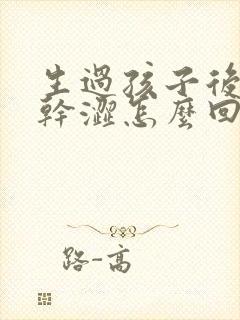 生過孩子後
幹澀怎麼回
路-高